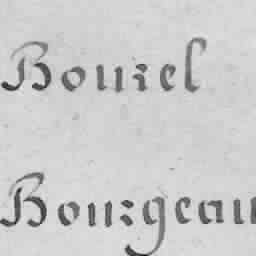 Bourel
Bourgeau